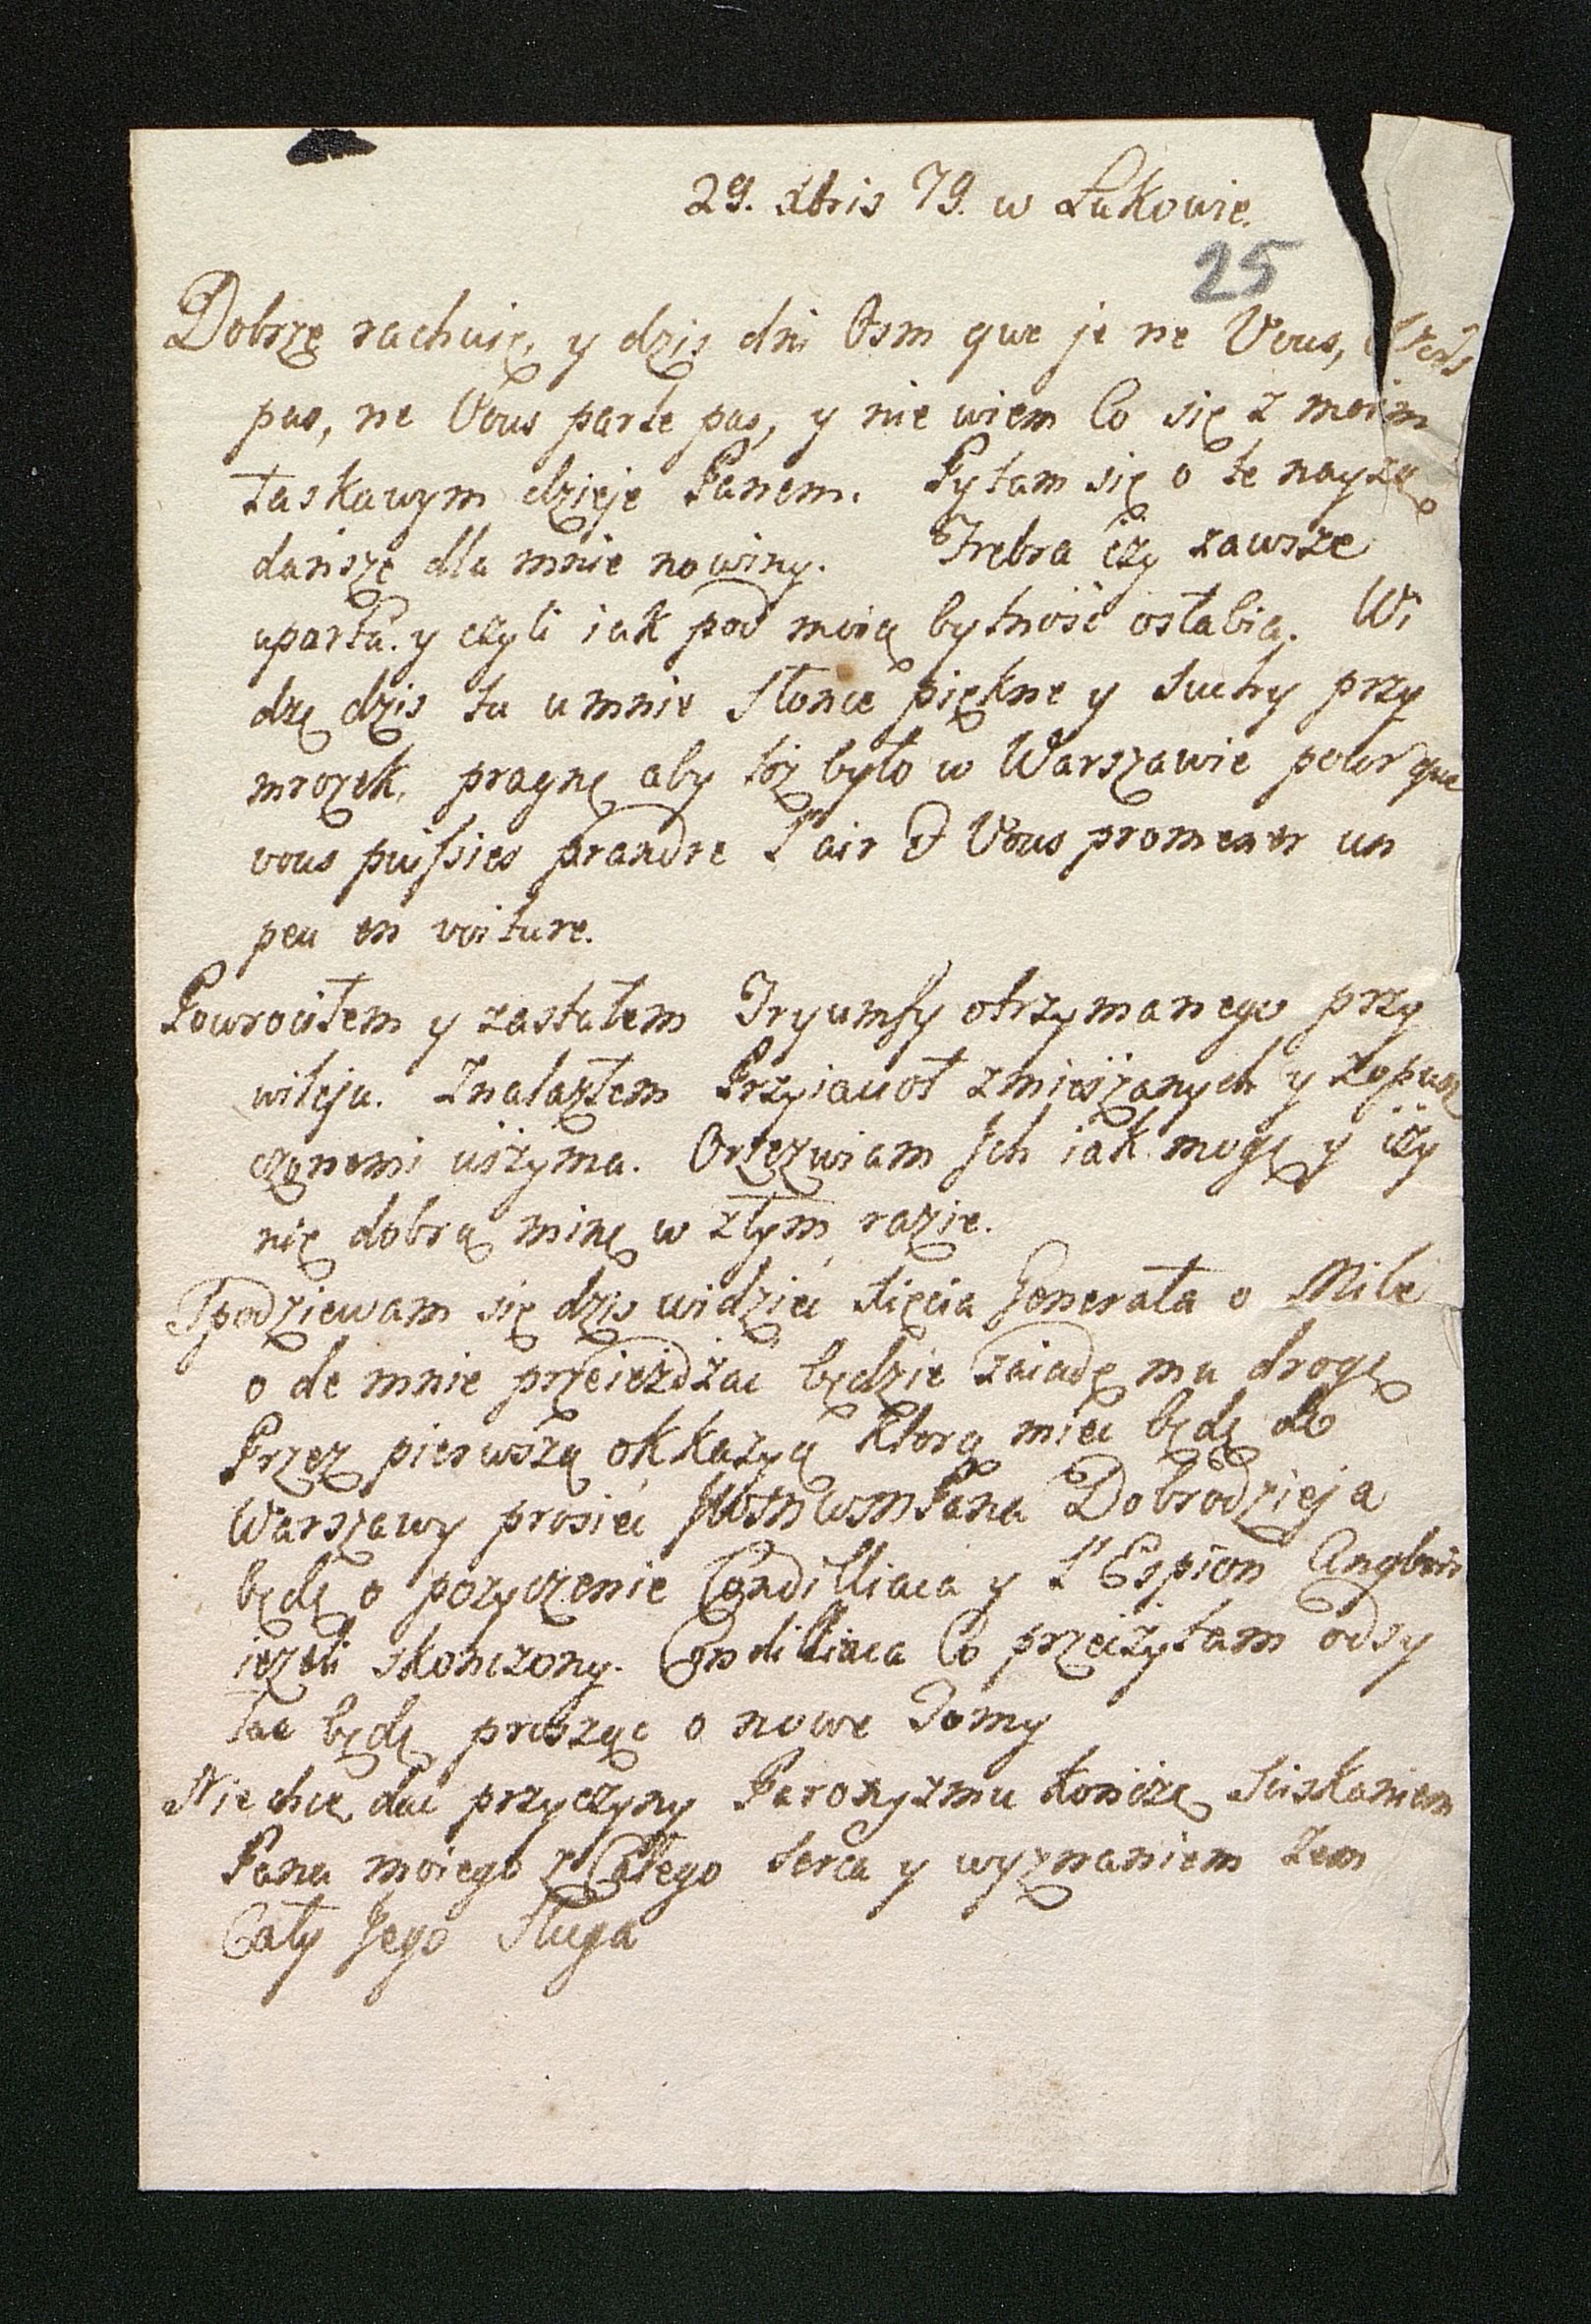 29. Xbris 79. w Łukowie.
25
Dobrze rachuię, y dzis dni Osm que je ne Vous, Vois
pas, ne Vous parle pas, y nie wiem Co się z moim
łaskawym dzieje Panem. Pytam się o te nayżą
dańsze dla mnie nowiny. Febra czy zawsze
uparta. y czyli iak pod moią bytność osłabia. Wi
dzę dzis tu u mnie Słonce piękne y suchy przy
mrozek, pragnę aby toż było w Warszawie pour que
vous puissies prandre l'air & Vous promener un
peu en voiture.
Powrociłem y zastałem Tryumfy otrzymanego przy
wileju. Znalazłem Przyiacioł zmieszanych y zopusz
czonemi uszyma. Orzezwiam Ich iak mogę y czy
nię dobrą minę w złym razie.
Spodziewam się dzis widzieć Xięcia Generała o Mile
o de mnie przeieżdżać będzie zaiadę mu drogę
Przez pierwszą okkazyą ktorą mieć będę do
Warszawy prosieć JWSMWMPana Dobrodzieja
będę o pozyczenie Condilliaca y L'Espion Anglois
ieżeli skonczony. Condilliaca Co przeczytam odsy
łac będę prosząc o nowe Tomy
Nie chcę dac przyczyny Paroxyzmu kończę Sciskaniem
Pana moiego z Całego Serca y wyznaniem żem
Cały Jego Sługa